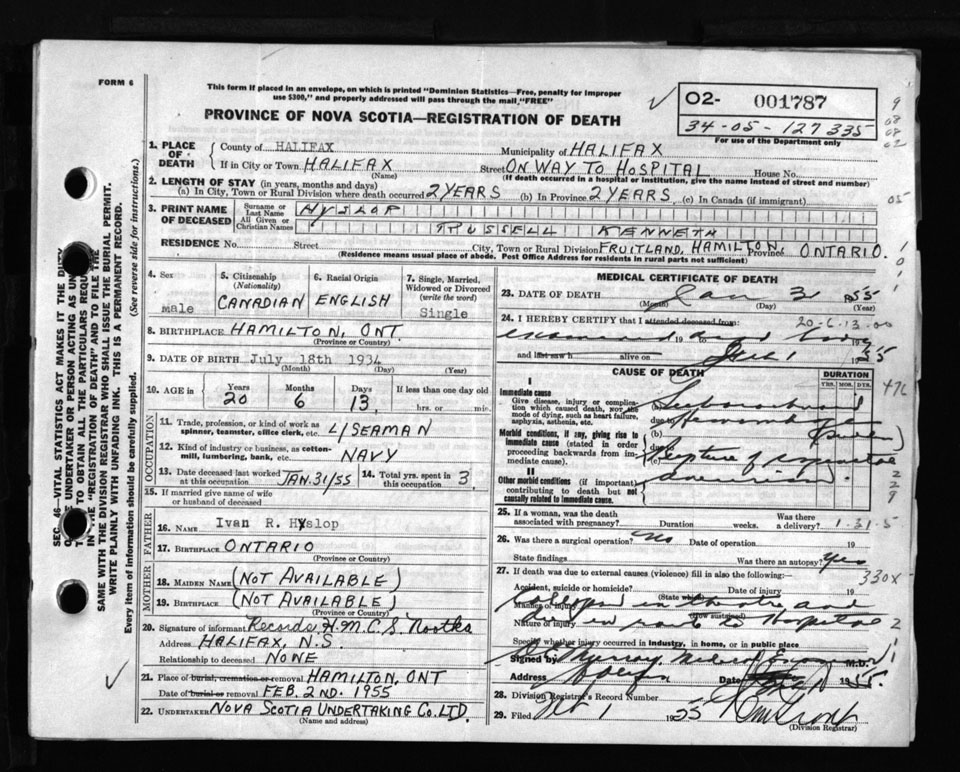 FORM 6
This form if placed in an envelope, on which is printed "Dominion Statistics—Free, penalty for improper
use $300," and properly addressed will pass through the mail, "FREE"
PROVINCE OF NOVA SCOTIA—REGISTRATION OF DEATH
O2- 001787
34-05-127335
For use of the Department only
9
08
08
02
05
1. PLACE OF DEATH
County of HALIFAX Municipality of HALIFAX
If in City or Town HALIFAX Street ON WAY TO HOSPITAL House No.
(Name) (If death occurred in a hospital or institution, give the name instead of street and number)
2. LENGTH OF STAY (in years, months and days)
(a) In City, Town or Rural Division where death occurred 2 YEARS (b) In Province 2 YEARS (c) In Canada (if immigrant)
3. PRINT NAME OF DECEASED
Surname or Last Name HYSLOP
All Given or Christian Names RUSSELL KENNETH
RESIDENCE No. Street City, Town or Rural Division FRUITLAND, HAMILTON, Province ONTARIO.
(Residence means usual place of abode. Post Office Address for residents in rural parts not sufficient)
4. Sex
male
5. Citizenship (Nationality)
CANADIAN
6. Racial Origin
ENGLISH
7. Single, Married, Widowed or Divorced (write the word)
Single
8. BIRTHPLACE HAMILTON, ONT
(Province or Country)
9. DATE OF BIRTH July 18th 1934
(Month) (Day) (Year)
10. AGE in Years Months Days If less than one day old
20 6 13 hrs. or min.
OCCUPATION
11. Trade, profession, or kind of work as spinner, teamster, office clerk, etc. L/SEAMAN
12. Kind of industry or business, as cotten-mill, lumbering, bank, etc. NAVY
13. Date deceased last worked at this occupation JAN. 31/55
14. Total yrs. spent in this occupation 3
15. If married give name of wife or husband of deceased
FATHER
16. NAME Ivan R. Hyslop
17. BIRTHPLACE ONTARIO
(Province or Country)
MOTHER
18. MAIDEN NAME (NOT AVAILABLE)
19. BIRTHPLACE (NOT AVAILABLE)
(Province or Country)
20. Signature of informant Records H.M.C.S. Nootka
Address HALIFAX, N.S.
Relationship to deceased NONE
21. Place of burial, cremation or removal HAMILTON, ONT
Date of burial or removal FEB. 2ND. 1955
22. UNDERTAKER NOVA SCOTIA UNDERTAKING CO. LTD.
(Name and address)
MEDICAL CERTIFICATE OF DEATH
23. DATE OF DEATH Jan 3 1955
(Month) (Day)
24. I HEREBY CERTIFY that I attended deceased from: 20-6-13-00
examined 19 to dead body
and last saw h alive on 1 1955
CAUSE OF DEATH
DURATION
YRS. MOS. DYS.
I
Immediate cause
Give disease, injury or complication which caused death, not the mode of dying, such as heart failure, asphyxia, asthenia, etc.
(a)
due to
Morbid conditions, if any, giving rise to immediate cause (stated in order proceeding backwards from immediate cause).
(b)
(c) Rupture of congenital
aneurism
II
Other morbid conditions (if important) contributing to death but not causally related to immediate cause.
25. If a woman, was the death associated with pregnancy? Duration weeks. Was there a delivery? 1-31-5
26. Was there a surgical operation? No Date of operation 19
State findings Was there an autopsy? Yes
330X
27. If death was due to external causes (violence) fill in also the following:—
Accident, suicide or homicide? Date of injury 19
(State which)
Manner of injury Collapsed in theatre and
(How sustained)
Nature of injury died en route to Hospital
Specify whether injury occurred in industry, in home, or in public place
Signed by Murray, Medical M.D.
Address Halifax Date 1955.
28. Division Registrar's Record Number
29. Filed Feb 1 1955
(Division Registrar)
SEC. 46—VITAL STATISTICS ACT MAKES IT THE DUTY
OF THE UNDERTAKER OR PERSON ACTING AS UN
TO OBTAIN ALL THE PARTICULARS REQU
IN THE "REGISTRATION OF DEATH" AND TO FILE THE
SAME WITH THE DIVISION REGISTRAR WHO SHALL ISSUE THE BURIAL PERMIT.
WRITE PLAINLY WITH UNFADING INK. THIS IS A PERMANENT RECORD.
Every item of information should be carefully supplied. (See reverse side for instructions.)